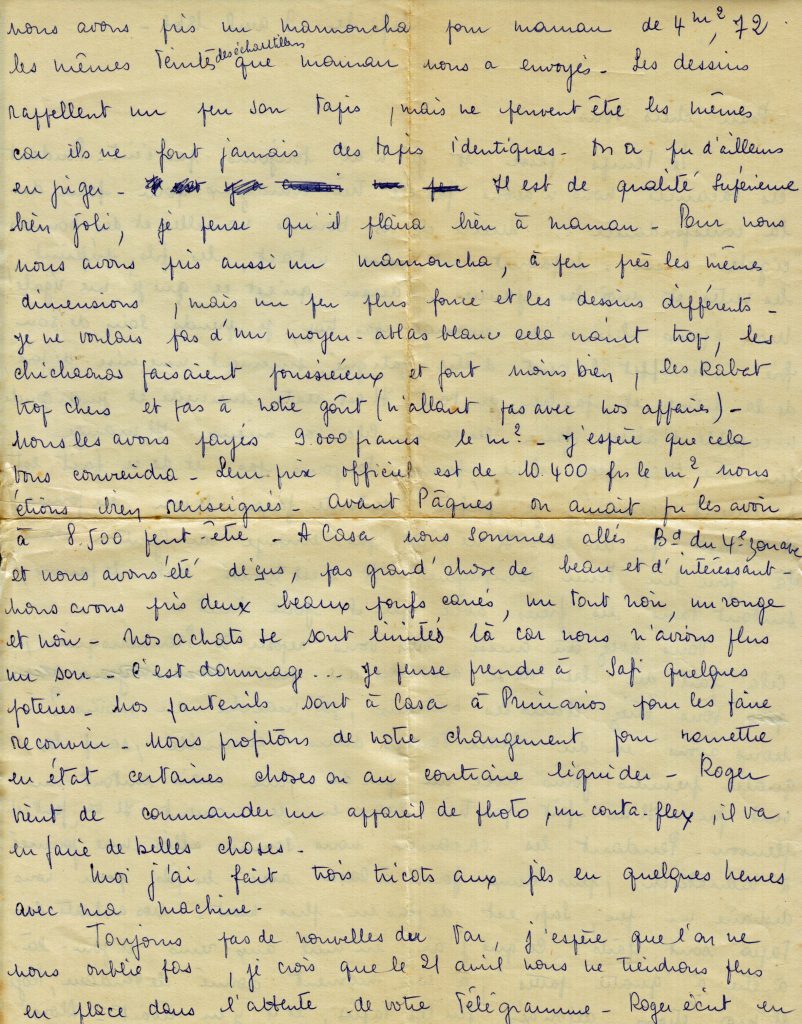 nous avons pris un marmoucha pour maman de 4 m², 72
les mêmes teintes des échantillons que maman nous a envoyés - Les dessins
rappellent un peu son tapis, mais ne peuvent être les mêmes
car ils ne font jamais des tapis identiques - On a pu d'ailleurs
en juger - Il est de qualité supérieure
bien joli, je pense qu'il plaira bien à maman - Pour nous
nous avons pris aussi un marmoucha, à peu près les mêmes
dimensions, mais un peu plus foncé et les dessins différents -
je ne voulais pas d'un moyen-atlas blanc cela trop, les
chichaouas faisaient poussiéreux et font moins bien, les Rabat
trop chers et pas à notre goût (n'allant pas avec nos affaires) -
Nous les avons payés 9.000 francs le m² - J'espère que cela
vous conviendra - Leur prix officiel est de 10.400 frs le m², nous
étions bien renseignés - Avant Pâques on aurait pu les avoir
à 8.500 peut-être - A Casa nous sommes allés Bd du 4e zouave
et nous avons été déçus, pas grand'chose de beau et d'intéressant -
Nous avons pris deux beaux poufs carrés, un tout noir, un rouge
et noir - Nos achats se sont limités là car nous n'avions plus
un sou - C'est dommage... Je pense prendre à Safi quelques
poteries - Nos fauteuils sont à Casa à Primarios pour les faire
recouvrir - Nous profitons de notre changement pour remettre
en état certaines choses ou au contraire liquider - Roger
vient de commander un appareil de photo, un conta-flex, il va
en faire de belles choses -
Moi j'ai fait trois tricots aux pts en quelques heures
avec ma machine -
Toujours pas de nouvelles du Var, j'espère que l'on ne
nous oublie pas, je crois que le 21 avril nous ne tiendrons plus
en place dans l'attente de votre Télégramme - Roger écrit en